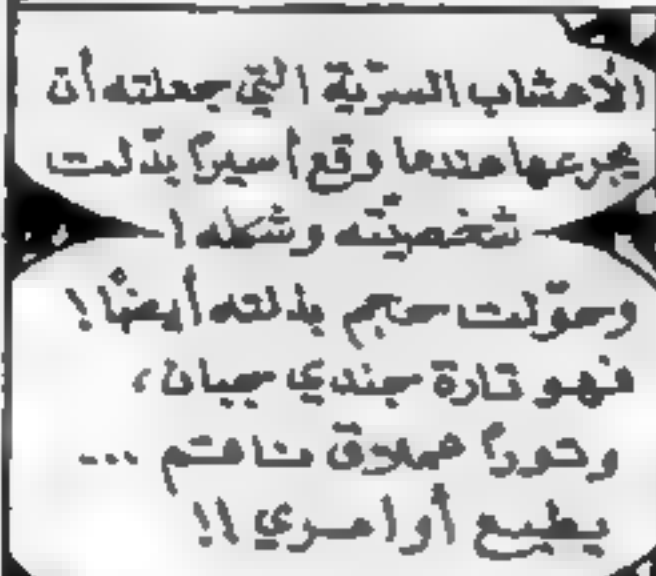 الأعشاب السرّية التي جعلته أن
يجرعها عندما وقع أسيرًا بدّلت
شخصيّته وشكله !
وحوّلت حجم بدلته أيضًا !
فهو تارة جندي جبان ،
وطورًا عملاق ناقم ...
يطيع أوامري !!